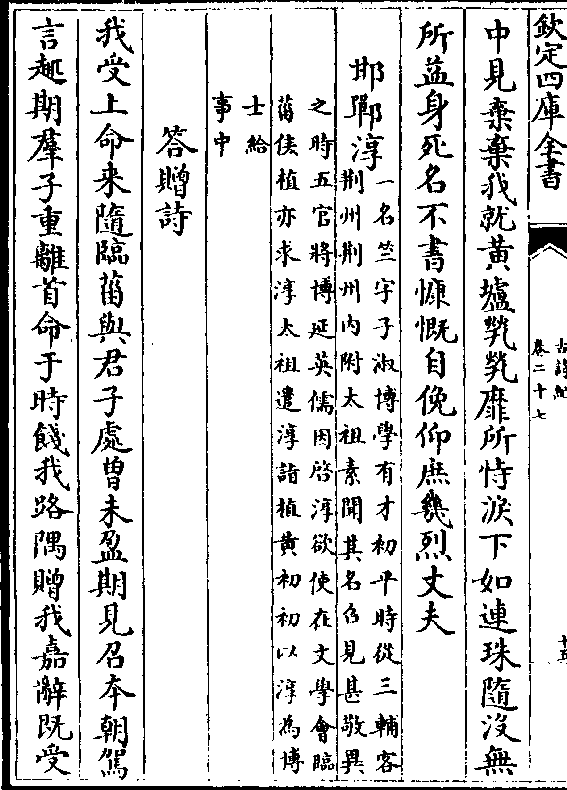 欽定四庫全書
古詩紀
卷二十七
中見棄棄我就黃壚煢煢靡所恃淚下如連珠隨沒無
所益身死名不書慷慨自俛仰庶幾烈丈夫
邯鄲淳
一名竺字子淑博學有才初平時從三輔客
荆州荆州内附太祖素聞其名召見甚敬異
之時五官將博延英儒因啓淳欲使在文學會臨
菑侯植亦求淳太祖遣淳詣植黄初初以淳為博
士給
事中
答贈詩
我受上命来隨臨菑與君子處曾未盈期見召本朝駕
言趣期羣子重離首命于時餞我路隅贈我嘉辭既受